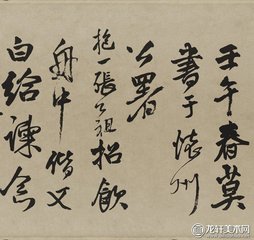 壬午春莫
書于懐州
公署
抱一張公祖招飲
舟中偕文
白給諫念
龙轩美术网